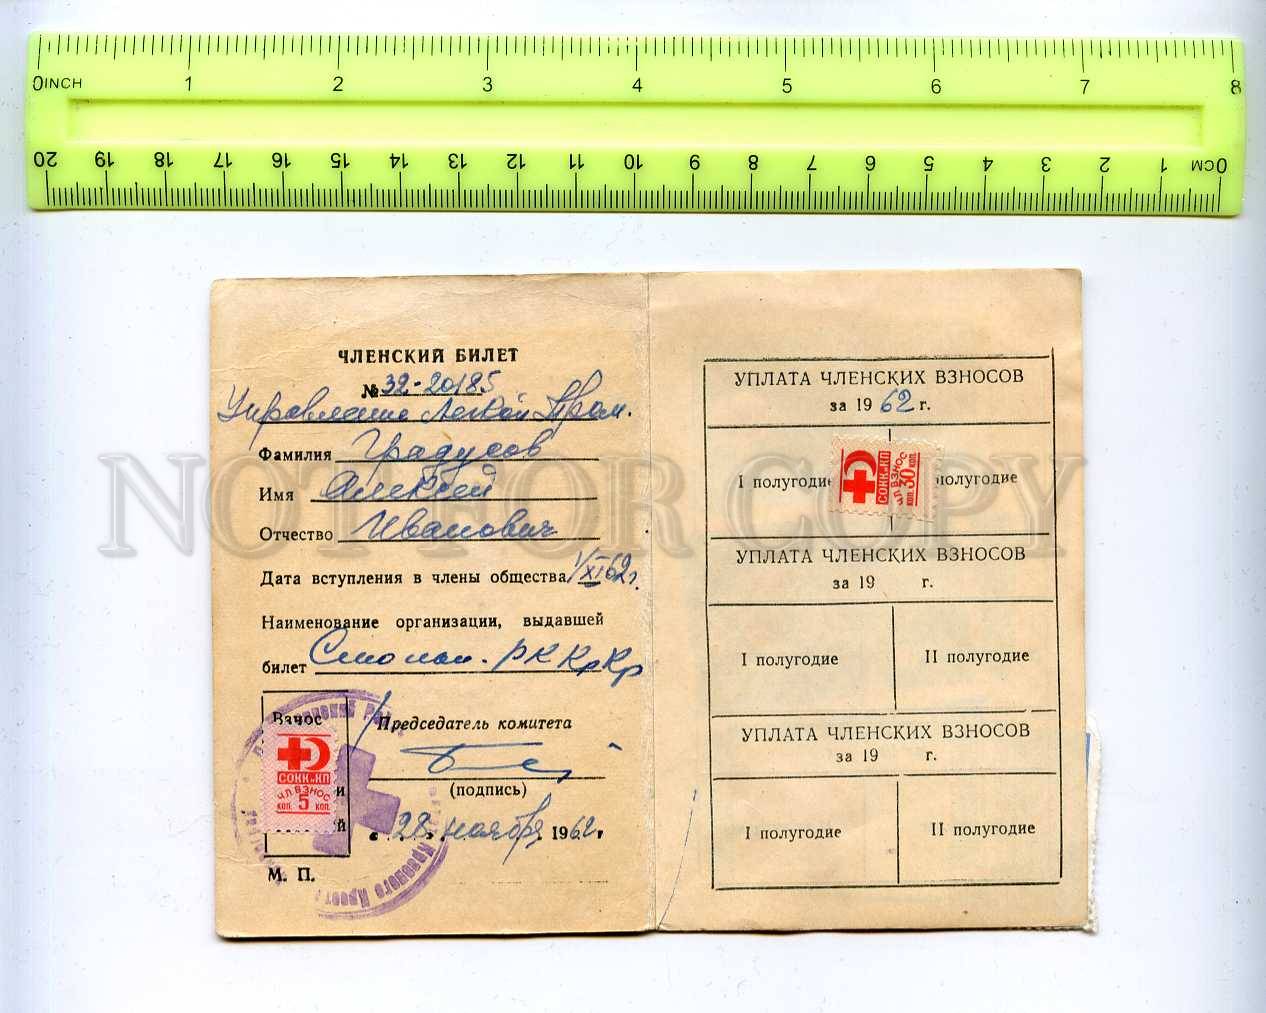 0 INCH 1 2 3 4 5 6 7 8
20 19 18 17 16 15 14 13 12 11 10 9 8 7 6 5 4 3 2 1 0 CM
ЧЛЕНСКИЙ БИЛЕТ
№ 32-20185
Управление Легкой Пром.
Фамилия Градусов
Имя Алексей
Отчество Иванович
Дата вступления в члены общества XI 62 г.
Наименование организации, выдавшей
билет РК КрКр
Взнос
Председатель комитета
СОКК и КП
ЧЛ. ВЗНОС
КОП. 5 КОП.
(подпись)
28 ноября 1962 г
М. П.
Красного Крест
УПЛАТА ЧЛЕНСКИХ ВЗНОСОВ
за 1962 г.
I полугодие
полугодие
СОКК и КП
ЧЛ. ВЗНОС
КОП. 30 КОП.
УПЛАТА ЧЛЕНСКИХ ВЗНОСОВ
за 19 г.
I полугодие II полугодие
УПЛАТА ЧЛЕНСКИХ ВЗНОСОВ
за 19 г.
I полугодие II полугодие
NOT FOR COPY